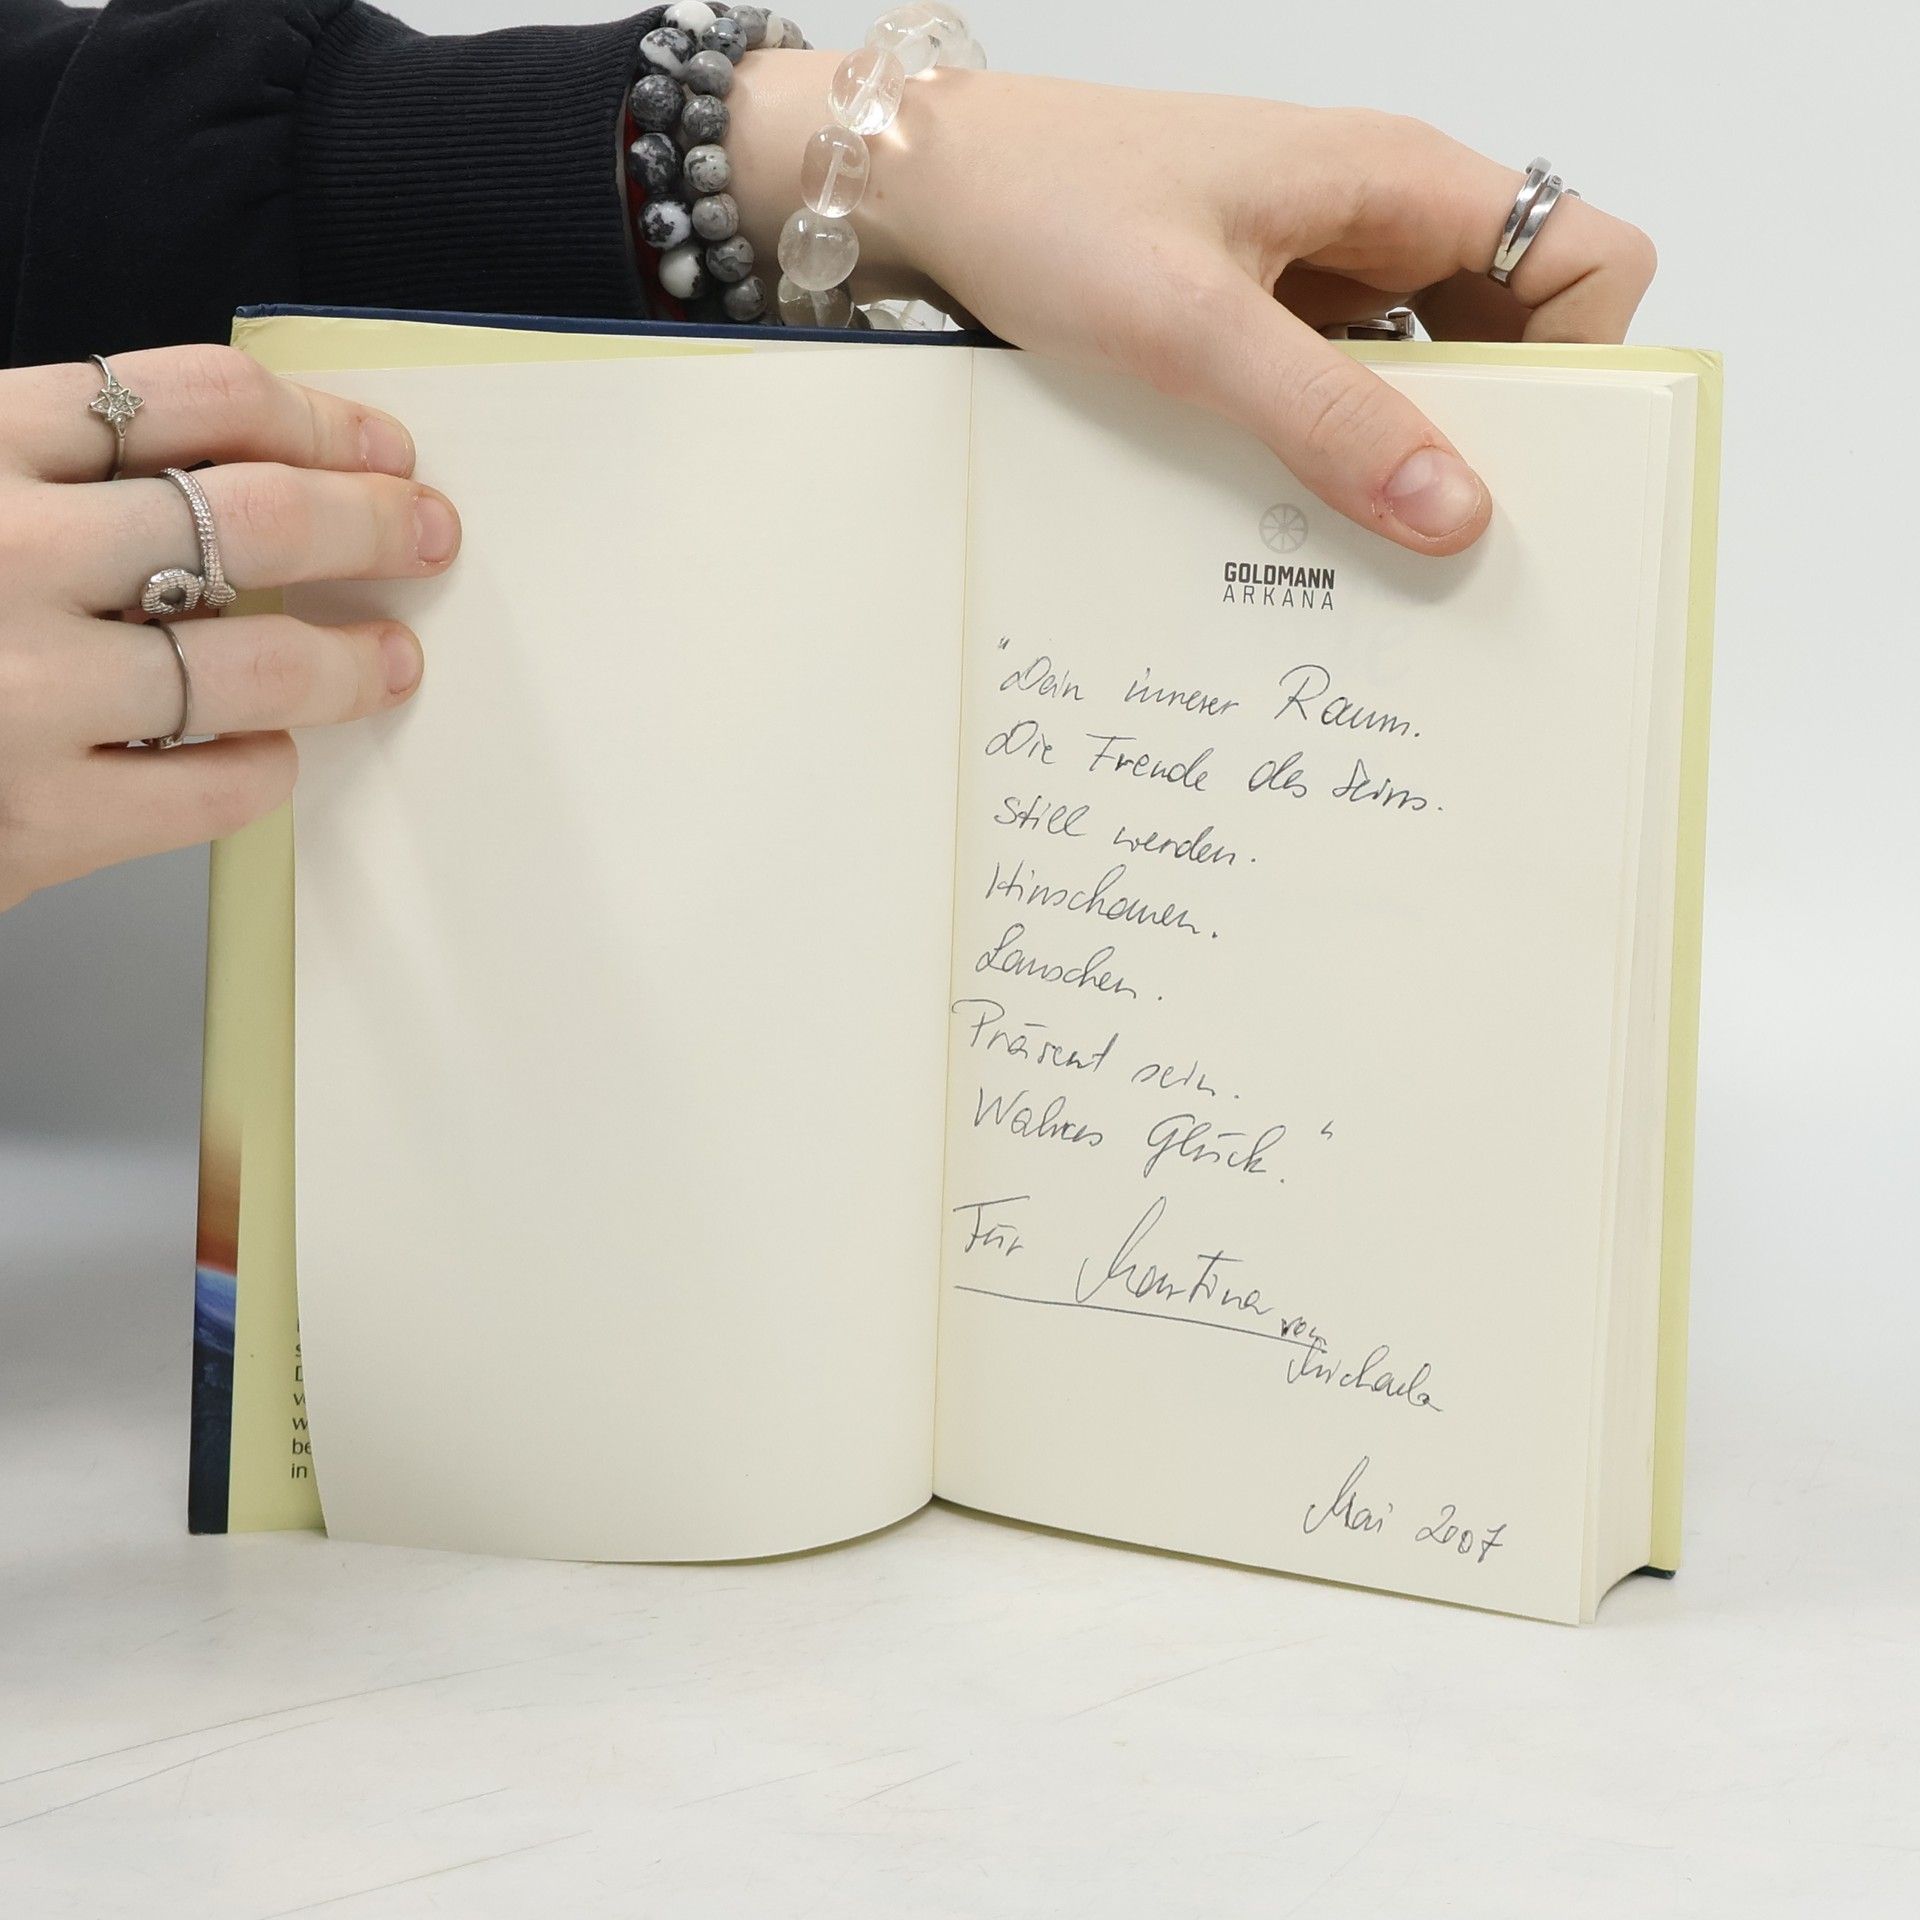 GOLDMANN
ARKANA
"Dein innerer Raum.
Die Freude des Seins.
Still werden.
Hinschauen.
Lauschen.
Präsent sein.
Wahres Glück."
Für Martina
von
Michaela
Mai 2007
w
be
in